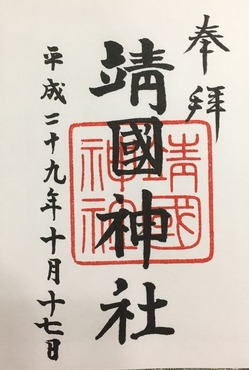 奉拜
靖國神社
靖國神社
平成二十九年十月十七日